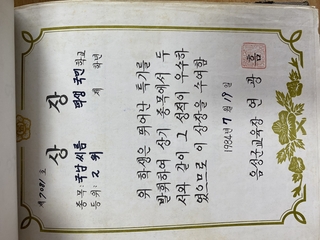 상 장
종목: 국남 씨름
등위: 2 위
국민 학교
제 학년
위 학생은 뛰어난 특기를
발휘하여 상기 종목에서 두
서와 같이 그 성적이 우수하
였으므로 이 상장을 수여함
1984년 7월 19일
음성군교육장 연 광 흠